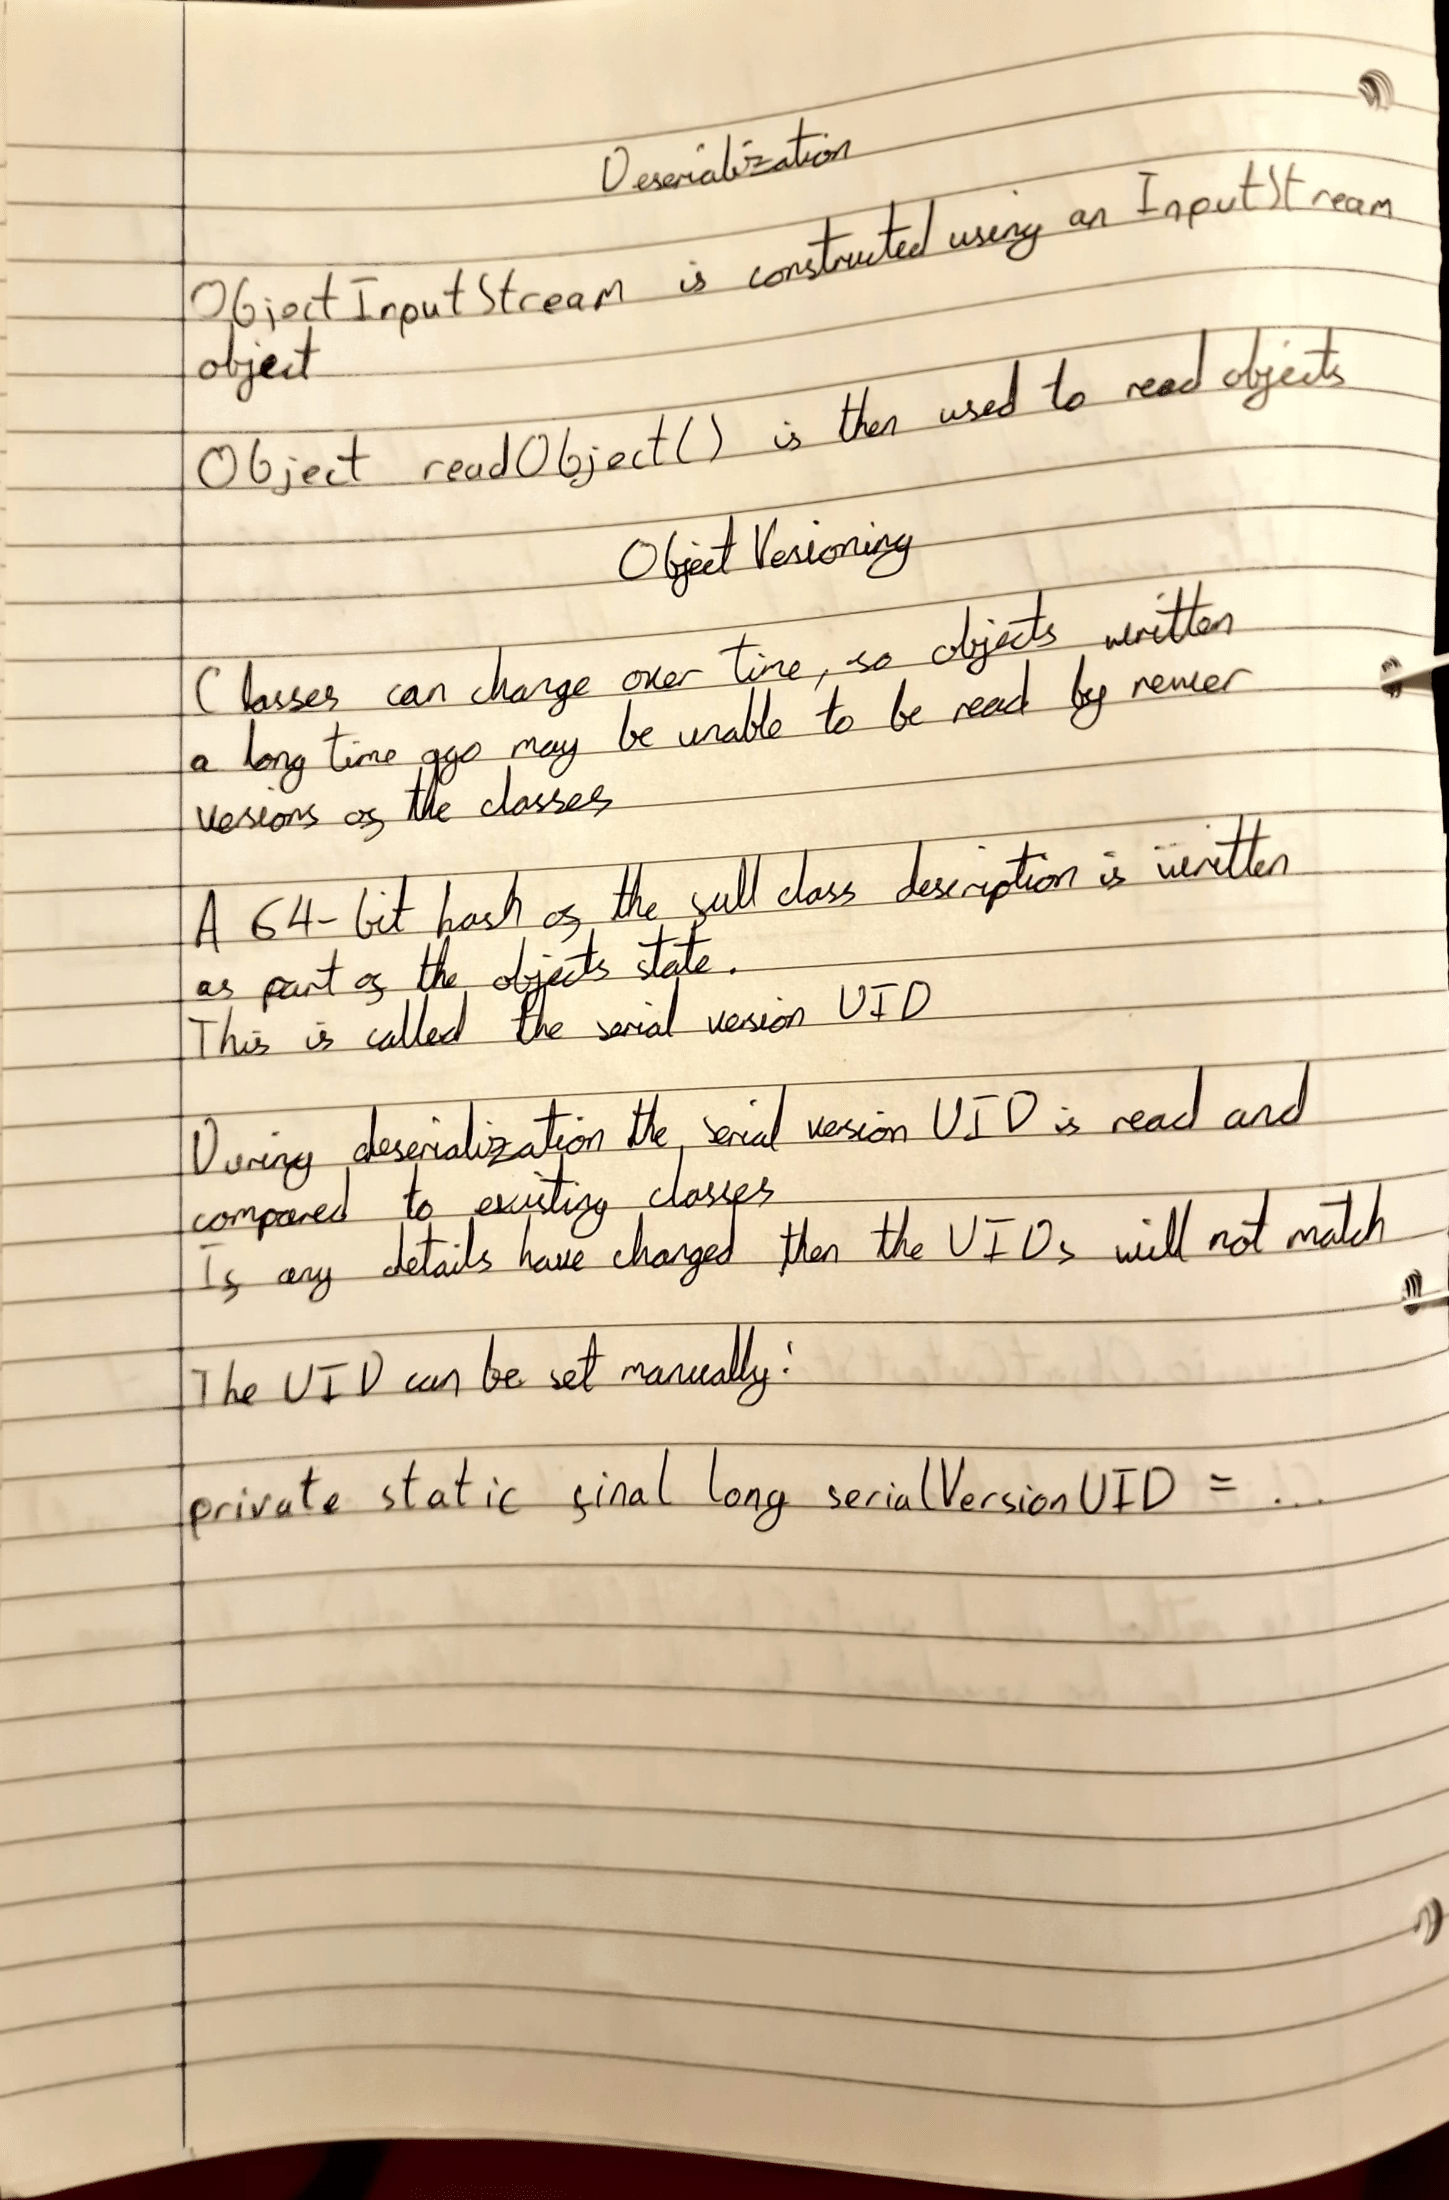 Deserialization
ObjectInputStream is constructed using an InputStream
object
Object readObject() is then used to read objects
Object Versioning
Classes can change over time, so objects written
a long time ago may be unable to be read by newer
versions of the classes
A 64-bit hash of the full class description is written
as part of the objects state.
This is called the serial version UID
During deserialization the serial version UID is read and
compared to existing classes
If any details have changed then the UIDs will not match
The UID can be set manually:
private static final long serialVersionUID = ...